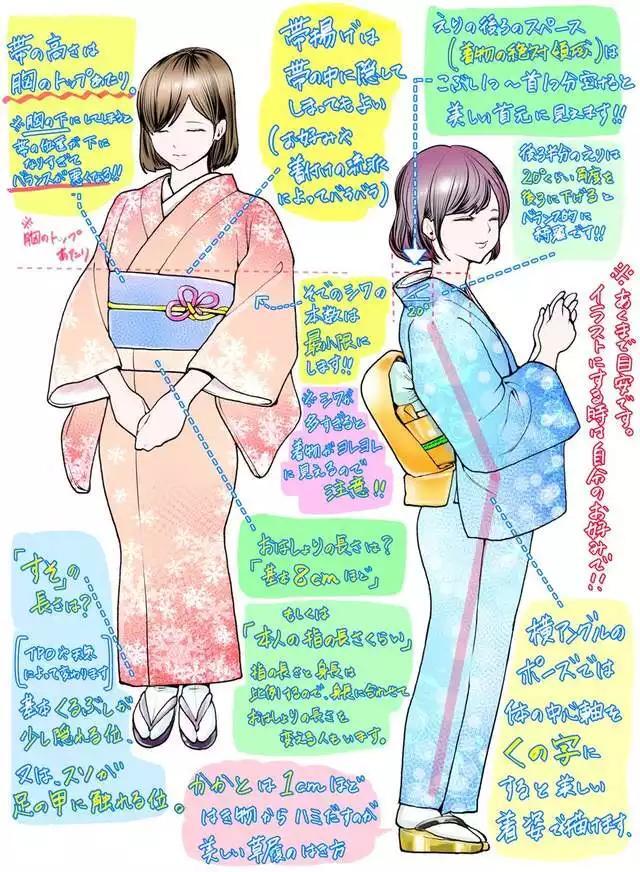 帯の高さは
胸のトップあたり。
※胸の下にしてしまうと
帯の位置が下に
なりすぎて
バランスが悪くなる!!
※
胸のトップ
あたり
帯揚げは
帯の中に隠して
しまってもよい
(お好みや
着付けの流派
によってバラバラ)
えりの後ろのスペース
(着物の絶対領域)は
こぶし1つ〜首1つ分空けると
美しい首元に見えます!!
後ろ半分のえりは
20°くらい角度を
後ろに下げると
バランス的に
綺麗です!!
20°
そでのシワの
本数は
最小限に
します!!
※シワが
多すぎると
着物がヨレヨレ
に見えるので
注意!!
※あくまで目安です。
イラストにする時は自分のお好みで!!
おはしょりの長さは?
「基本8cmほど」
もしくは
「本人の指の長さくらい」
指の長さと身長は
比例するので、身長に合わせて
おはしょりの長さを
変える人もいます。
「すそ」の
長さは?
[TPOや天候
によって変わります]
基本くるぶしが
少し隠れる位、
又は、スソが
足の甲に触れる位。
かかとは1cmほど
はき物からハミだすのが
美しい草履のはき方
横アングルの
ポーズでは
体の中心軸を
くの字に
すると美しい
着姿で描けます。